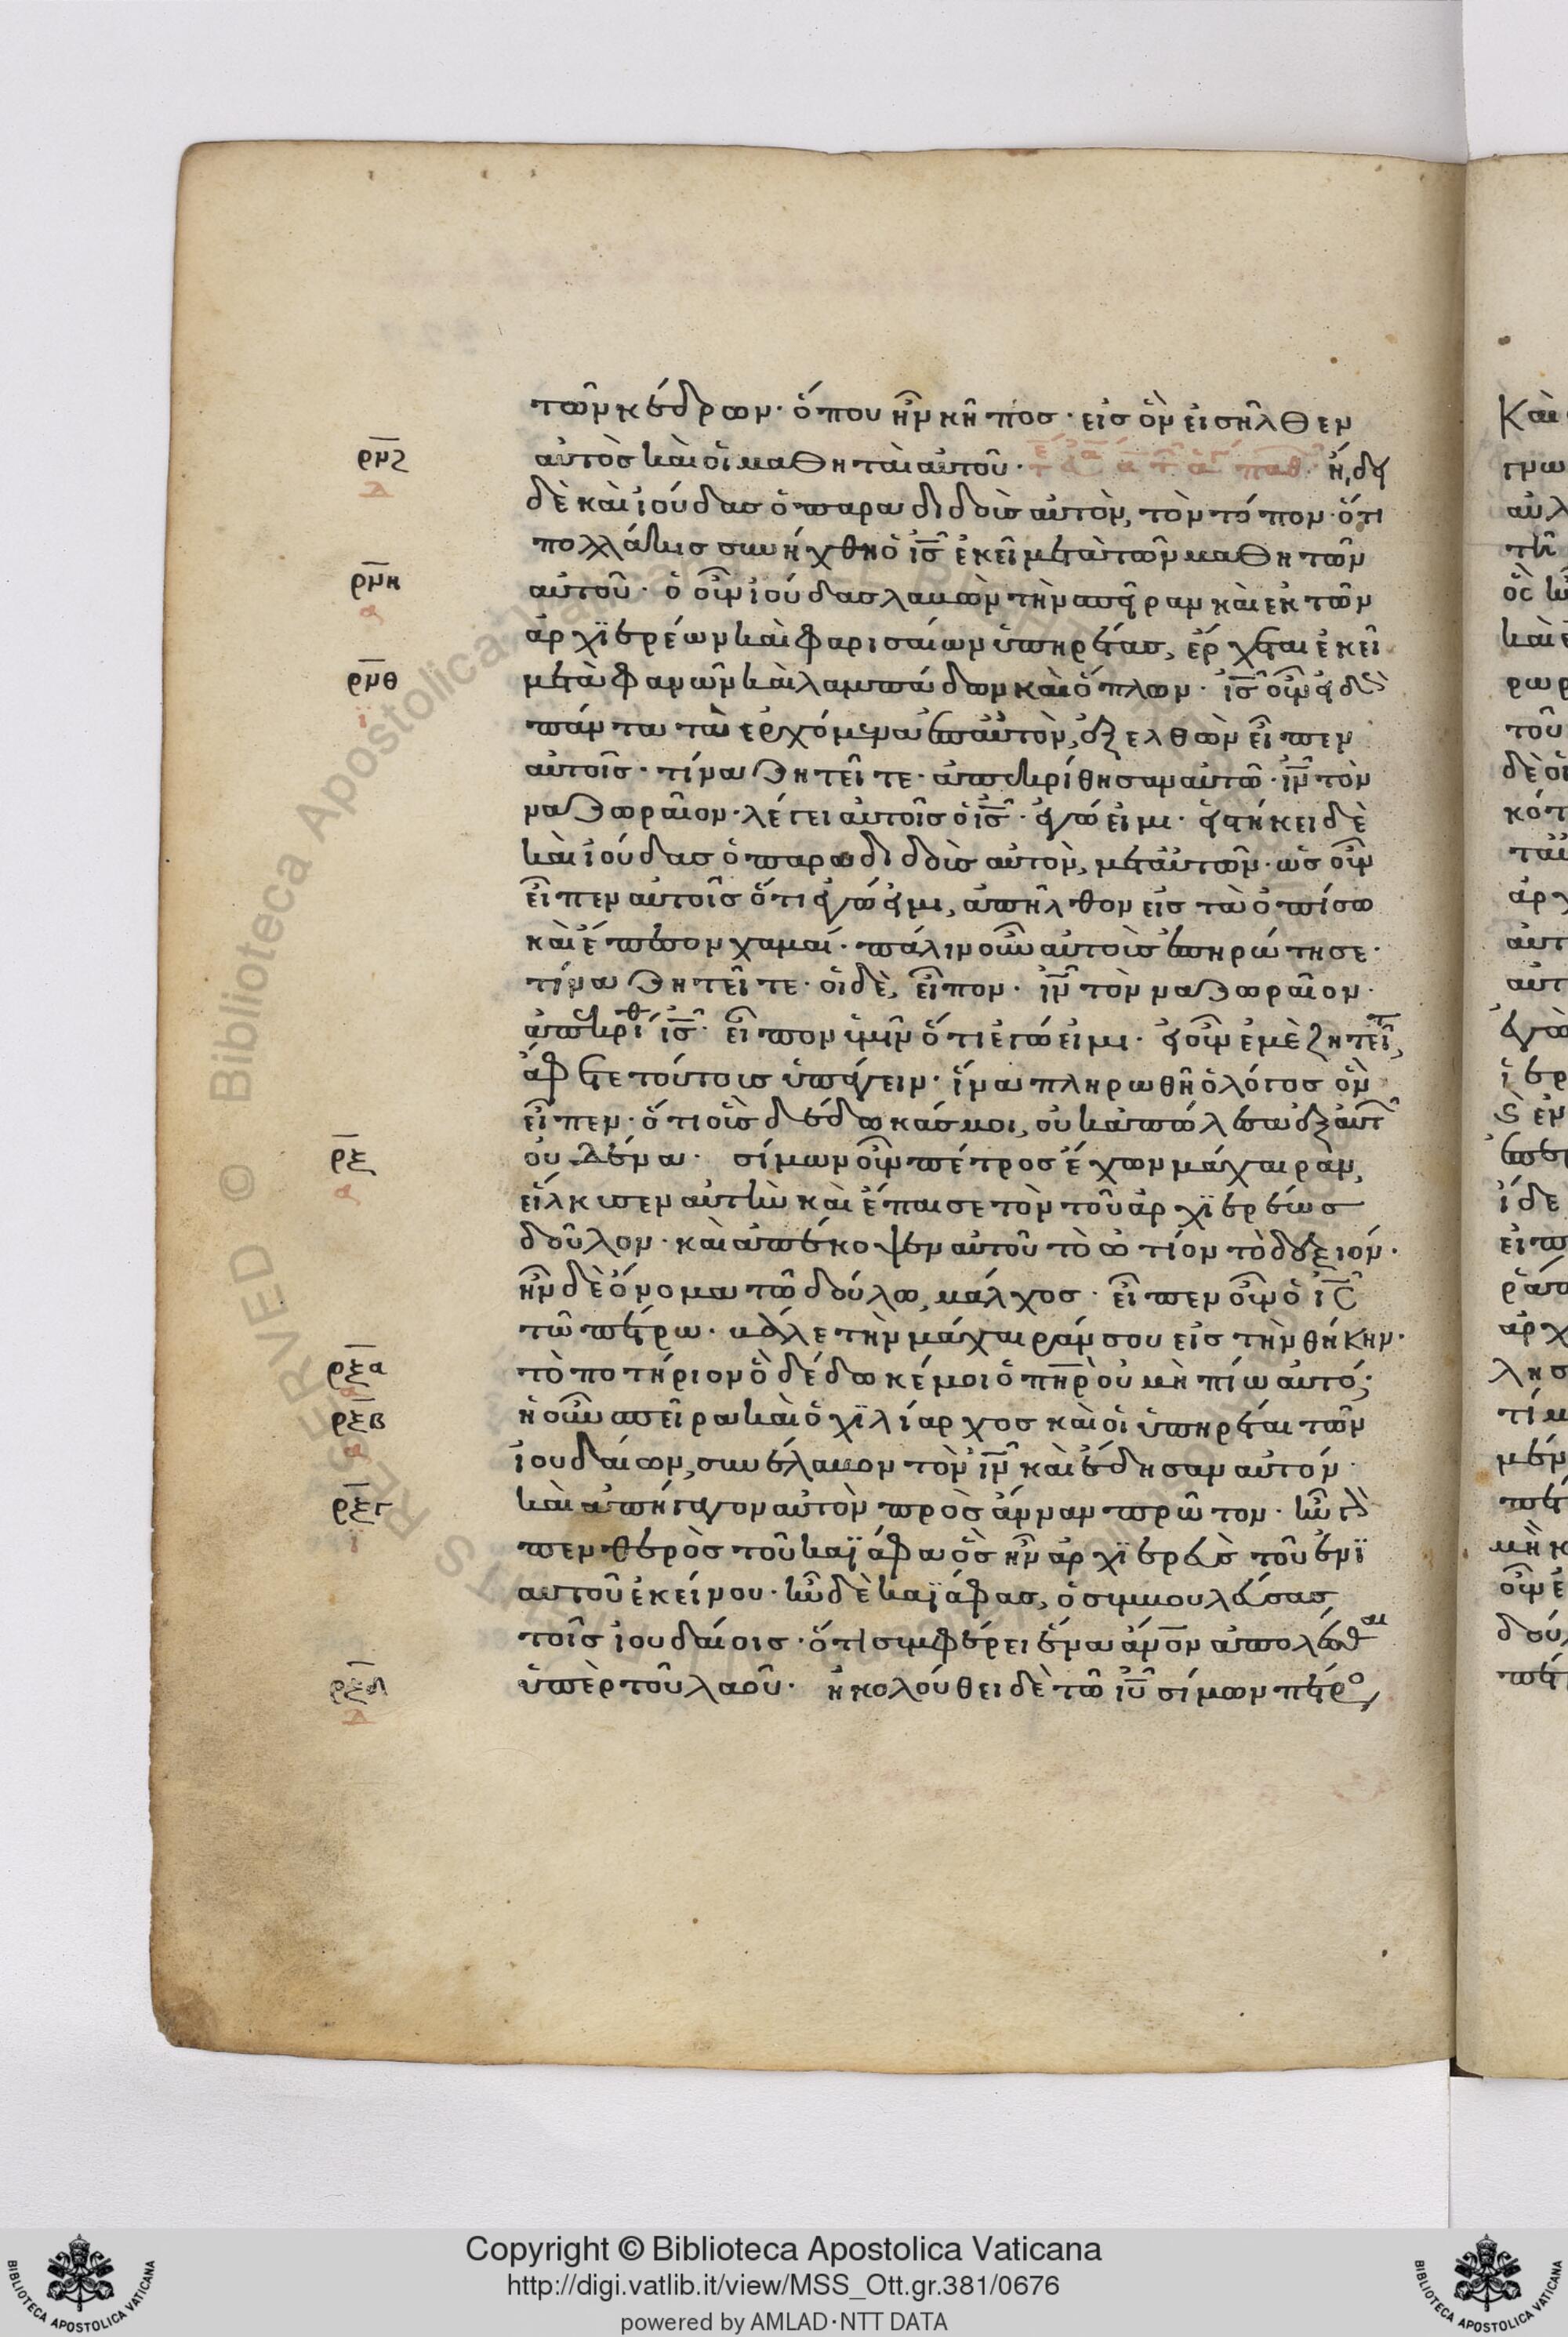 τῶν κέδρων· ὅπου ἦν κῆπος· εἰς ὃν εἰσῆλθεν
ρνζ αὐτὸς καὶ οἱ μαθηταὶ αὐτοῦ· ἤδει
δὲ καὶ ἰούδας ὁ παραδιδοὺς αὐτὸν, τὸν τόπον· ὅτι
πολλάκις συνήχθη ὁ ἰς ἐκεῖ μετὰ τῶν μαθητῶν
ρνη αὐτοῦ· ὁ οὖν ἰούδας λαβὼν τὴν σπεῖραν καὶ ἐκ τῶν
ἀρχϊερέων καὶ φαρισαίων ὑπηρέτας, ἔρχεται ἐκεῖ
ρνθ μετὰ φανῶν καὶ λαμπάδων καὶ ὅπλων· ἰς οὖν εἰδὼς
πάντα τὰ ἐρχόμενα ἐπ αὐτὸν, ἐξελθὼν εἶπεν
αὐτοῖς· τίνα ζητεῖτε· ἀπεκρίθησαν αὐτῶ· ἰν τὸν
ναζωραῖον· λέγει αὐτοῖς ὁ ἰς· ἐγώ εἰμι· εἱστήκει δὲ
καὶ ἰούδας ὁ παραδιδοὺς αὐτὸν, μετ αὐτῶν· ὡς οὖν
εἶπεν αὐτοῖς ὅτι ἐγώ εἰμι, ἀπῆλθον εἰς τὰ ὀπίσω
καὶ ἔπεσον χαμαί· πάλιν οὖν αὐτοὺς ἐπηρώτησε·
τίνα ζητεῖτε· οἱ δὲ, εἶπον· ἰν τὸν ναζωραῖον·
ἀπεκρίθ ἰς· εἶπον ὑμῖν ὅτι ἐγώ εἰμι· εἰ οὖν ἐμὲ ζητεῖτ,
ἄφετε τούτους ὑπάγειν· ἵνα πληρωθῆ ὁ λόγος ὃν
εἶπεν· ὅτι οὓς δέδωκάς μοι, οὐκ ἀπώλεσα ἐξ αὐτ
ρξ οὐδένα· σίμων οὖν πέτρος ἔχων μάχαιραν,
εἵλκυσεν αὐτὴν καὶ ἔπαισε τὸν τοῦ ἀρχϊερέως
δοῦλον· καὶ ἀπέκοψεν αὐτοῦ τὸ ὠτίον τὸ δεξιόν·
ἦν δὲ ὄνομα τῶ δούλω, μάλχος· εἶπεν οὖν ὁ ἰς
τῶ πέτρω· βάλε τὴν μάχαιράν σου εἰς τὴν θήκην·
ρξα τὸ ποτήριον ὃ δέδωκέ μοι ὁ πηρ οὐ μὴ πίω αὐτό;
ρξβ ἡ οὖν σπεῖρα καὶ ὁ χϊλίαρχος καὶ οἱ ὑπηρέται τῶν
ἰουδαίων, συνέλαβον τὸν ἰν καὶ ἔδησαν αὐτόν·
ρξγ καὶ ἀπήγαγον αὐτὸν πρὸς ἄνναν πρῶτον· ἦν γὰρ
πενθερὸς τοῦ καϊάφα ὃς ἦν ἀρχϊερεὺς τοῦ ἐνϊ
αυτοῦ ἐκείνου· ἦν δὲ καϊάφας, ὁ συμβουλεύσας
τοῖς ἰουδαίοις· ὅτι συμφέρει ἕνα ἄνον ἀπολέσθαι
ρξδ ὑπὲρ τοῦ λαοῦ· ἠκολούθει δὲ τῶ ἰυ σίμων πέτρο
Copyright © Biblioteca Apostolica Vaticana
http://digi.vatlib.it/view/MSS_Ott.gr.381/0676
powered by AMLAD·NTT DATA
BIBLIOTECA APOSTOLICA VATICANA
BIBLIOTECA APOSTOLICA VATICANA